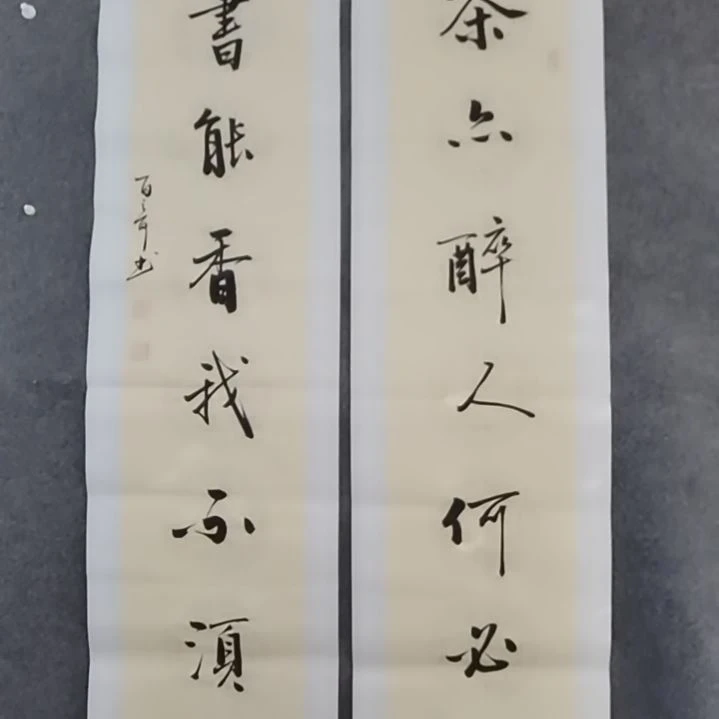 茶亦醉人何必
書能香我不須